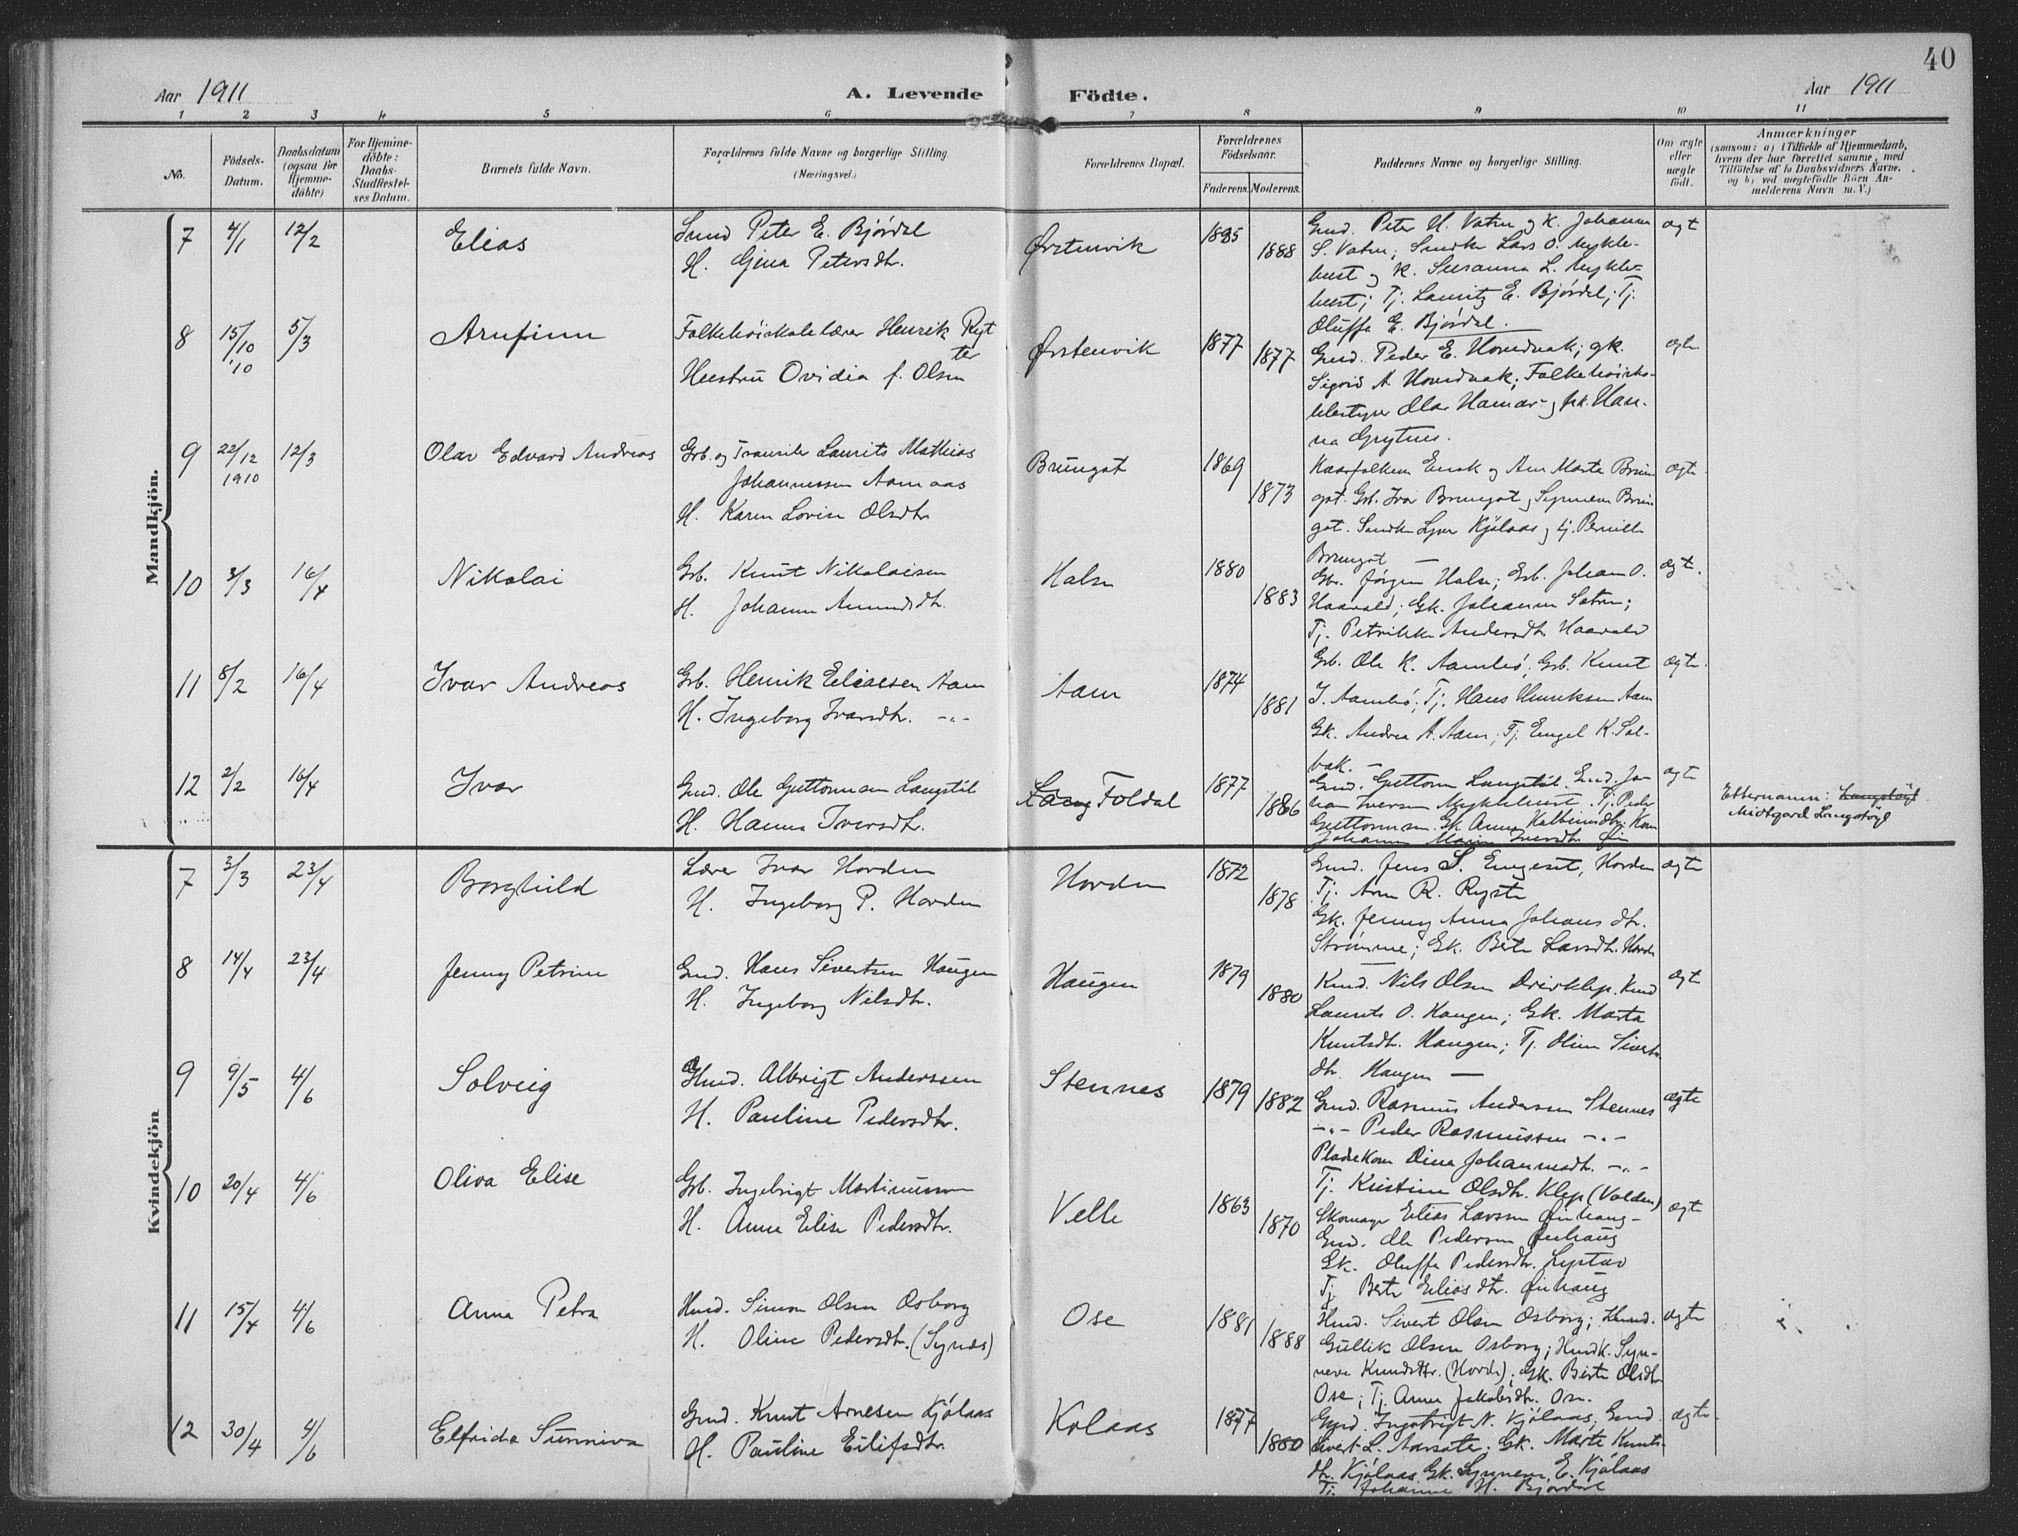 40
Aar 1911
A. Levende Födte.
Aar 1911
1 2 3 4 5 6 7 8 9 10 11
No.
Födsels-
Datum.
Daabsdatum
(ogsaa for
Hjemme-
döbte)
For Hjemme-
döbte:
Daabs-
Stadfæstel-
ses Datum.
Barnets fulde Navn.
Forældrenes fulde Navne og borgerlige Stilling.
(Næringsvei.)
Forældrenes Bopæl.
Forældrenes
Födselsaar.
Faderens. Moderens.
Faddernes Navne og borgerlige Stilling.
Om ægte
eller
uægte
födt.
Anmærkninger
(saasom: a) i Tilfælde af Hjemmedaab,
hvem der har forrettet samme, med
Tilföielse af to Daabsvidners Navne.
og b) ved uægtefödte Börn An-
melderens Navn m. V.)
Mandkjön.
7 4/1 12/2 Elias
Peter E. Bjørdal
H. Gina Petersdtr.
Ørstenvik 1885 1888
Gmd. Peter H. Vatne og K. Johanna
S. Vatne; Lars O. Mykle-
bust og K. Susanna L. Mykle-
bust; Tj. Lauritz E. Bjørdal; Tj.
Oluffa E. Bjørdal.
ægt
8 15/10 10 5/3 Arnfinn
Folkehøiskolelærer Henrik Ryt
ter
Hustru Ovidia f. Olsen
Ørstenvik 1877 1877
Gmd. Peder E. Hovdenak; gk.
Sigrid A. Hovdenak; Folkehøisko-
lebestyrer Olav Hamar og frk. Han-
na Grytnes.
ægte
9 22/12 1910 12/3 Olav Edvard Andreas
Grb. og Laurits Mathias
Johannessen Aamaas
H. Karen Lovise Olsdtr
Brungot 1869 1873
Kaarfolkene og Ane Marta Brun
got. Grb. Ivar Brungot og Synneva Brun
got. Kjølaas og tj. Pernille
Brungot —
ægte
10 3/3 16/4 Nikolai
Grb. Knut Nikolaisen
H. Johanne Amundsdtr.
Halse 1880 1883
Gbr. Jørgen Halse; Grb. Johan O.
Haavold; Gk. Johanne Sætre;
Tj. Petrikke Andersdtr Haavold
ægt.
11 8/2 16/4 Ivar Andreas
Grb. Henrik Eliassen Aam
H. Ingeborg Ivarsdtr. -"-
Aam 1874 1881
Grb. Ole K. Aambø; Grb. Knut
J. Aambø; Tj. Hans Henriksen Aam
Gk. Andrea A. Aam; Tj. Engel K. Sol-
bak. —
ægte.
12 2/2 16/4 Ivar
Gmd. Ole Guttormsen Langstöl
H. Hanna Iversdtr.
Lang Foldal 1877 1886
Gmd. Guttorm Langstöl. Gmd. Jo-
han Iversen Myklebust. Tj. Peder
Guttormsen. Gk. Anna
Johanne Iversdtr
ægte
Etternamn: Langstöyl
Midtgard Langstöyl
Kvindekjön
7 3/3 23/4 Borghild
Lærer Ivar Hovden
H. Ingeborg P. Hovden
Hovden 1872 1878
Gmd. Jens S. Engeset, Hovden
Tj. Arne R. Ryste
Gk. Jenny Anna Johansdtr.
Strömme; Gk. Berte Larsdtr. Hovde
ægte
8 14/4 23/4 Jenny Petrine
Gmd. Hans Sivertsen Haugen
H. Ingeborg Nilsdtr.
Haugen 1879 1880
Kmd. Nils Olsen Kmd
Laurits O. Haugen; Gk. Marta
Knutsdtr. Haugen; Tj. Oline Siverts
dtr. Haugen —
ægt
9 9/5 4/6 Solveig
Hmd. Albrigt Anderssen
H. Pauline Pedersdtr.
Stennes 1879 1882
Gmd. Rasmus Andersen Stennes
-"- Peder Rasmussen -"-
Pladsekone Dina Johannesdtr. -"-
Tj. Kristine Olsdtr. Klep (Volden)
ægte
10 20/4 4/6 Oliva Elise
Grb. Ingebrigt Martinussen
H. Anne Elise Pedersdtr.
Velle 1863 1870
Skomager Elias Larsen
Gmd. Ole Pedersen
Gk. Oluffa Pedersdtr.
Tj. Berte Eliasdtr.
ægte
11 15/4 4/6 Anna Petra
Hmd. Simon Olsen Osborg
H. Oline Pedersdtr. (Synds)
Ose 1881 1888
Hmd. Sivert Olsen Osborg; Hmd.
Gullik Olsen Osborg; Hmdk. Syn-
neve Knudsdtr. (Horde); Gk. Berte Olsdtr
Ose; Tj. Anne Jakobsdtr. Ose.
ægte
12 30/4 4/6 Elfrida Sunniva
Gmd. Knut Arnesen Kjölaas
H. Pauline Eilifsdtr.
Kolaas 1877 1880
Gmd. Ingebrigt N. Kjölaas; Gmd.
Sivert L. Aarsæte. Gk. Marte Knuts-
dtr. Kjölaas. Gk. Synneve E. Kjölaas
Tj. Johanne H. Bjørdal
ægte